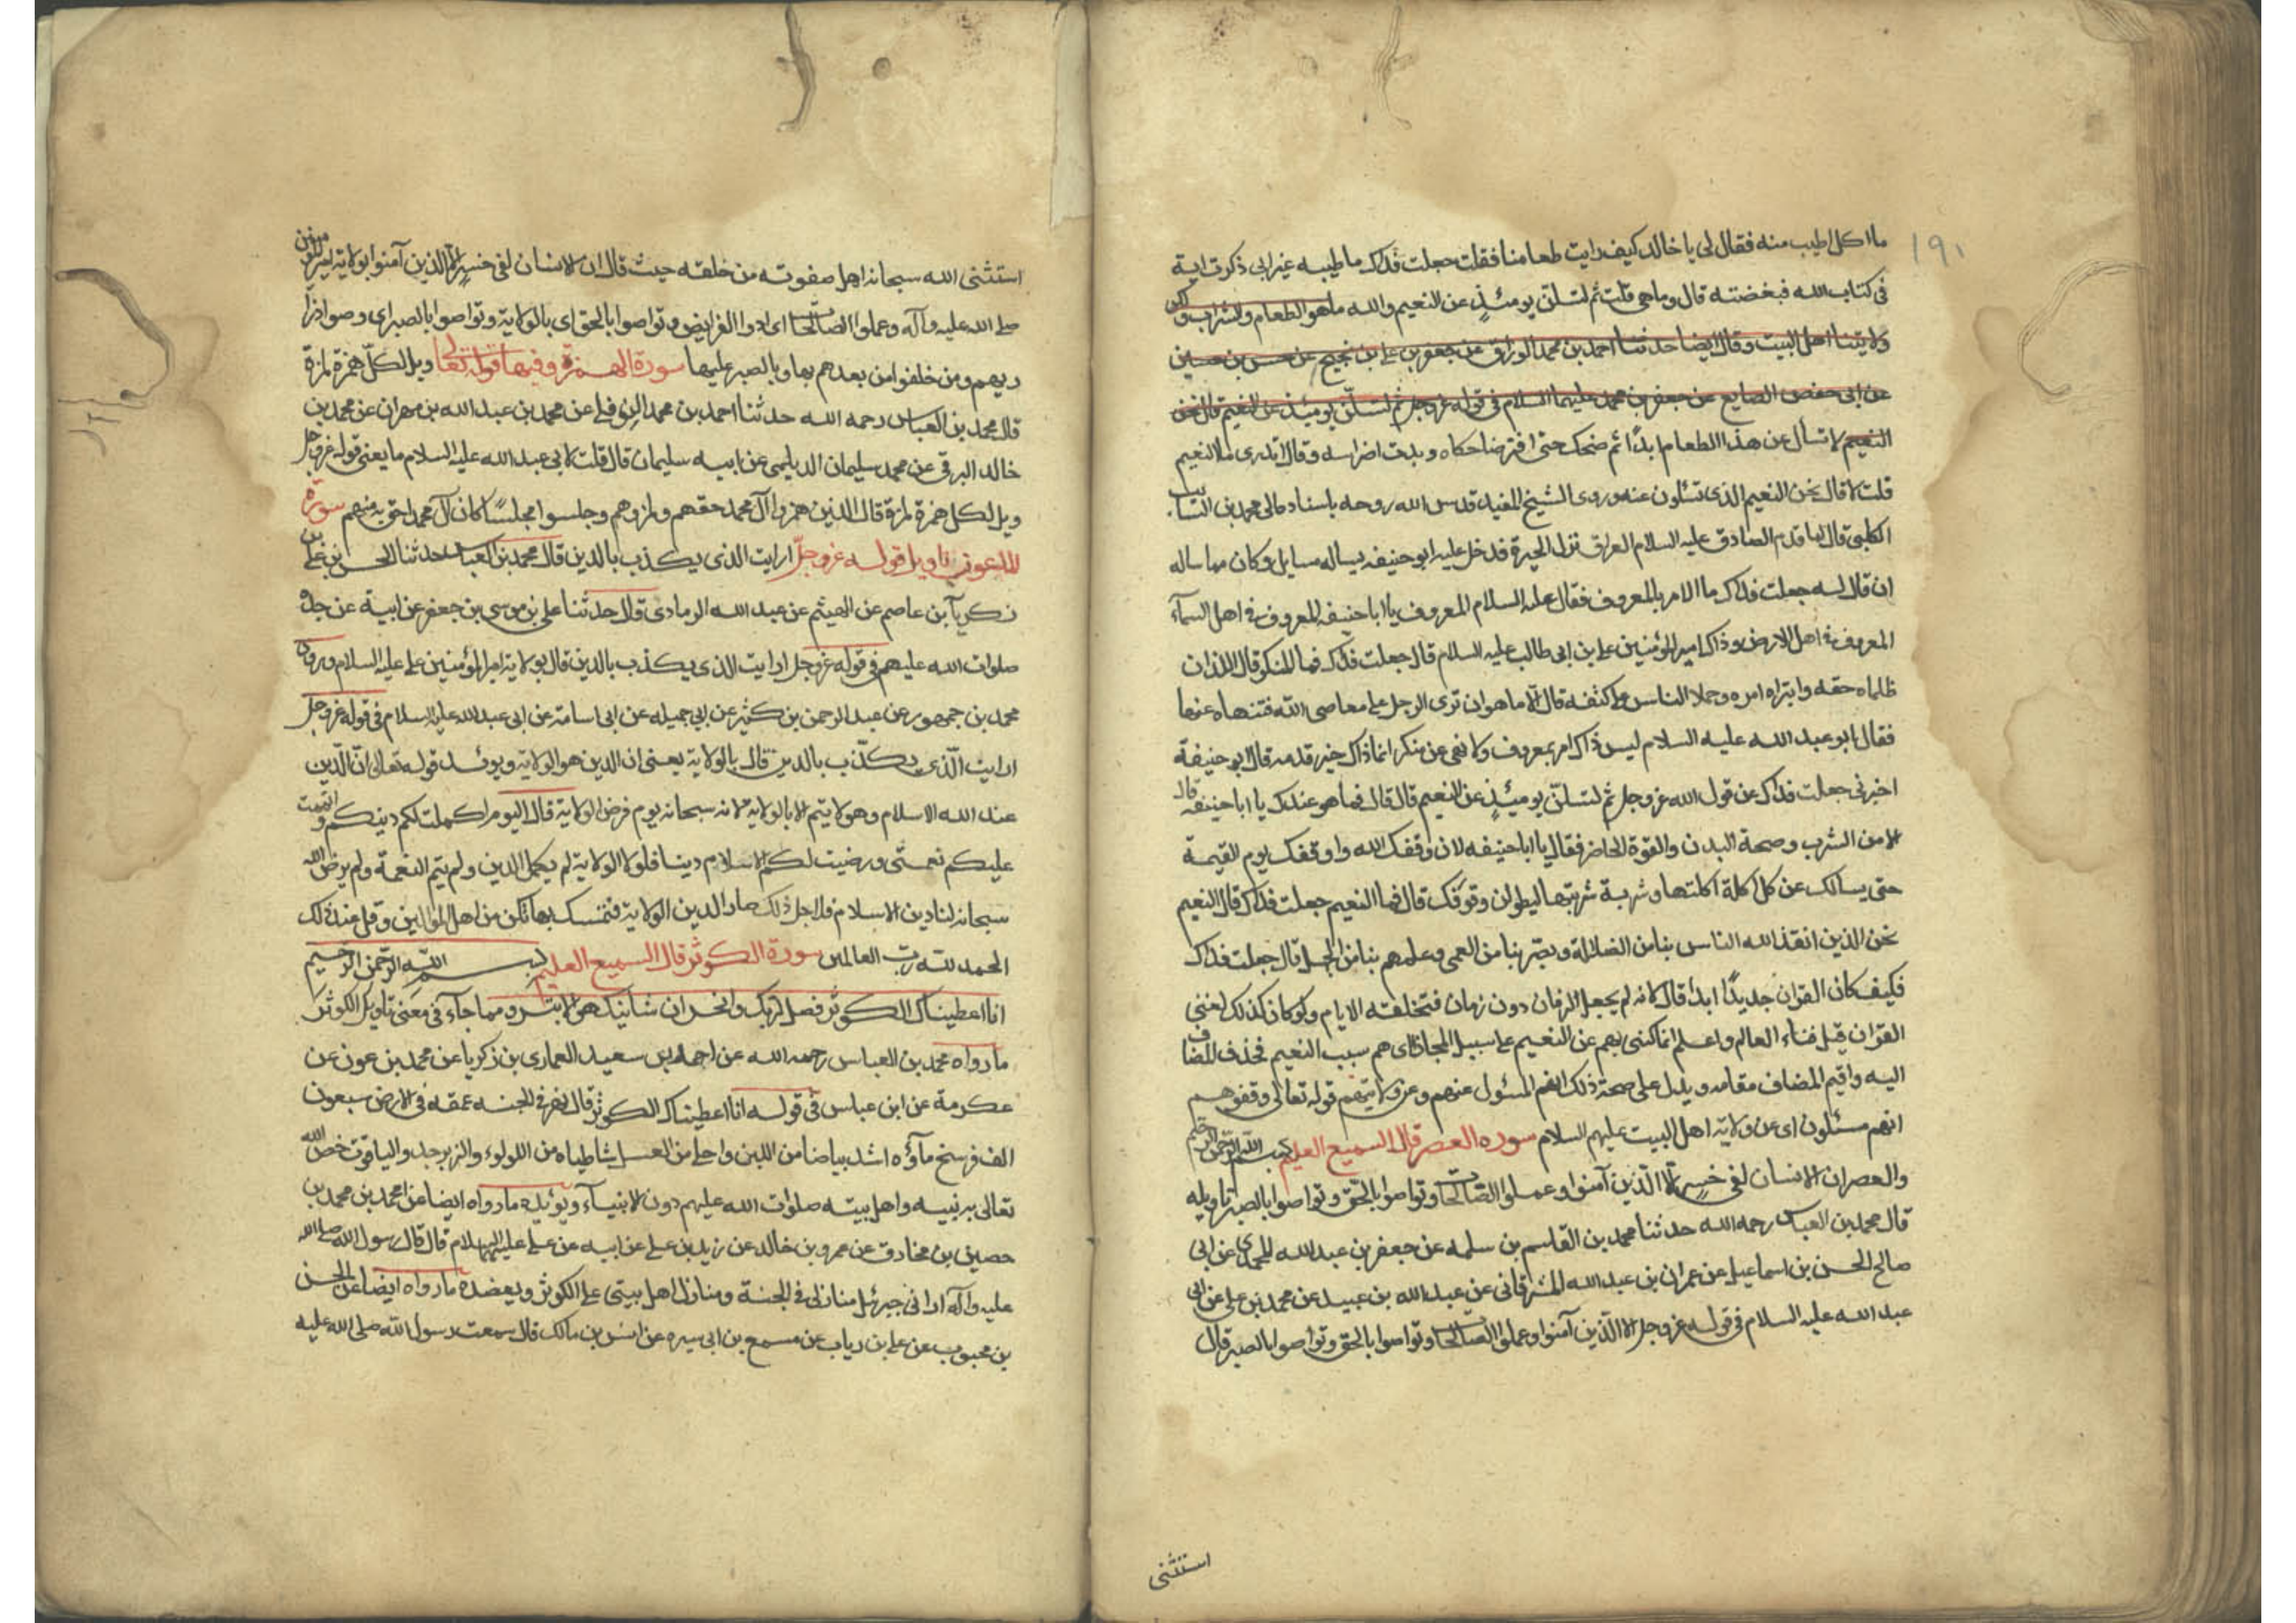 ١٩١
ما اكل اطيب منه فقال لى يا خالد كيف رايت طعامنا فقلت جعلت فداك ما طيبه غير انى ذكرت اية
فى كتاب الله فبغضته قال وما هى قلت ثم لتسئلن يومئذٍ عن النعيم والله ما هو الطعام والشراب ولكن
ولايتنا اهل البيت وقال ايضا حدثنا احمد بن محمد الوراق عن جعفر بن على بن نجيح عن حسن بن حسين
عن ابى حفص الصايغ عن جعفر بن محمد عليهما السلام فى قوله عز وجل ثم لتسئلن يومئذ عن النعيم قال نحن
النعيم لا تسأل عن هذا الطعام ابدًا ثم ضحك حتى افتر ضاحكاه وبدت اضراسه وقال اتدرى ما النعيم
قلت لا قال نحن النعيم الذى تسئلون عنه وروى الشيخ المفيد قدس الله روحه باسناده الى محمد بن السائب
الكلبى قال لما قدم الصادق عليه السلام العراق نزل الحيرة فدخل عليه ابو حنيفه يساله مسايل وكان مما ساله
ان قال له جعلت فداك ما الامر بالمعروف فقال عليه السلام المعروف يا ابا حنيفه المعروف فى اهل السمآء
المعروف فى اهل الارض وذاك امير المؤمنين على بن ابى طالب عليه السلام قال جعلت فداك فما المنكر قال اللذان
ظلماه حقه وابتزاه امره وحملا الناس على كتفه قال الا ما هو ان ترى الرجل على معاصى الله فتنهاه عنها
فقال ابو عبد الله عليه السلام ليس ذاك امر بمعروف ولا نهى عن منكر انما ذاك خير قدمه قال ابو حنيفة
اخبرنى جعلت فداك عن قول الله عز وجل ثم لتسئلن يومئذٍ عن النعيم قال قال فما هو عندك يا ابا حنيفه قال
الامن الشرب وصحة البدن والقوة الحاضر فقال يا ابا حنيفه لان وقفك الله واوقفك يوم القيمة
حتى يسالك عن كل اكلة اكلتها وشربة شربتها ليطولن وقوفك قال فما النعيم جعلت فداك قال النعيم
نحن الذين انقذ الله الناس بنا من الضلالة وبصرهم بنا من العمى وعلمهم بنا من الجهل قال جعلت فداك
فكيف كان القرآن جديدًا ابدا قال لانه لم يجعل لزمان دون زمان فتخلقه الايام ولو كان كذلك لفنى
القرآن قبل فناء العالم واعلم انما كنى بهم عن النعيم على سبيل المجاز اى هم سبب النعيم فحذف المضاف
اليه واقيم المضاف مقامه ويدل على صحة ذلك انهم المسئول عنهم وعن ولايتهم قوله تعالى وقفوهم
انهم مسئلون اى عن ولاية اهل البيت عليهم السلام سوره العصر قال السميع العليم بسم الله الرحمن الرحيم
والعصر ان الانسان لفى خسرٍ الا الذين آمنوا وعملوا الصالحات وتواصوا بالحق وتواصوا بالصبر تاويله
قال محمد بن العباس رحمه الله حدثنا محمد بن القاسم بن سلمه عن جعفر بن عبد الله المحمدى عن ابى
صالح الحسن بن اسماعيل عن عمران بن عبد الله المشرقانى عن عبد الله بن عبيد عن محمد بن على عن ابى
عبد الله عليه السلام فى قوله عز وجل الا الذين آمنوا وعملوا الصالحات وتواصوا بالحق وتواصوا بالصبر قال
استثنى
استثنى الله سبحانه اهل صفوته من خلقه حيث قال ان الانسان لفى خسرٍ الا الذين آمنوا بولاية امير المؤمنين
صلى الله عليه وآله وعملوا الصالحات اى ادوا الفرايض وتواصوا بالحق اى بالولاية وتواصوا بالصبر اى وصوا ذرا
ريهم ومن خلفوا من بعدهم بها وبالصبر عليها سورة الهمزة وفيها قوله تعالى ويل لكل همزة لمزة
قال محمد بن العباس رحمه الله حدثنا احمد بن محمد النوفلى عن محمد بن عبد الله بن مهران عن محمد بن
خالد البرقى عن محمد سليمان الديلمى عن ابيه سليمان قال قلت لابى عبد الله عليه السلام ما يعنى قوله عز وجل
ويل لكل همزة لمزة قال الذين همزوا آل محمد حقهم ولمزوهم وجلسوا مجلسًا كان آل محمد احق به منهم سورة
الماعون تاويل قوله عز وجل ارايت الذى يكذب بالدين قال محمد بن العباس حدثنا الحسن بن على بن
زكريا بن عاصم عن الهيثم عن عبد الله الرمادى قال حدثنا على بن موسى بن جعفر عن ابيه عن جده
صلوات الله عليهم فى قوله عز وجل ارايت الذى يكذب بالدين قال بولاية امير المؤمنين على عليه السلام وروى
محمد بن جمهور عن عبد الرحمن بن كثير عن ابى جميله عن ابى اسامة عن ابى عبد الله عليه السلام فى قوله عز وجل
ارايت الذى يكذب بالدين قال بالولاية يعنى ان الدين هو الولاية ويؤيده قوله تعالى ان الدين
عند الله الاسلام وهو لا يتم الا بالولاية لانه سبحانه يوم فرض الولاية قال اليوم اكملت لكم دينكم واتممت
عليكم نعمتى ورضيت لكم الاسلام دينا فلولا الولاية لم يكمل الدين ولم تتم النعمة ولم يرض الله
سبحانه لنا دين الاسلام فلاجل ذلك صار الدين الولاية فتمسك بها تكن من اهل الموالين وقل عند ذلك
الحمد لله رب العالمين سورة الكوثر قال السميع العليم بسم الله الرحمن الرحيم
انا اعطيناك الكوثر فصل لربك وانحر ان شانيك هو الابتر ومما جآء فى معنى تاويل الكوثر
ما رواه محمد بن العباس رحمه الله عن احمد بن سعيد العمارى بن زكريا عن محمد بن عون عن
عكرمة عن ابن عباس فى قوله انا اعطيناك الكوثر قال نهر فى الجنه عمقه فى الارض سبعون
الف فرسخ مآؤه اشد بياضا من اللبن واحلى من العسل شاطياه من اللولوء والزبرجد والياقوت خص الله
تعالى به نبيه واهل بيته صلوات الله عليهم دون الانبيآء ويؤيده ما رواه ايضا عن احمد بن محمد بن
حصين بن مخارق عن عمرو بن خالد عن زيد بن على عن ابيه عن على عليهم السلام قال قال رسول الله صلى الله
عليه وآله ارانى جبرئيل منازلى فى الجنة ومنازل اهل بيتى على الكوثر ويعضده ما رواه ايضا عن الحسن
بن محبوب عن على بن رياب عن مسمع بن ابى سيره عن انس بن مالك قال سمعت رسول الله صلى الله عليه